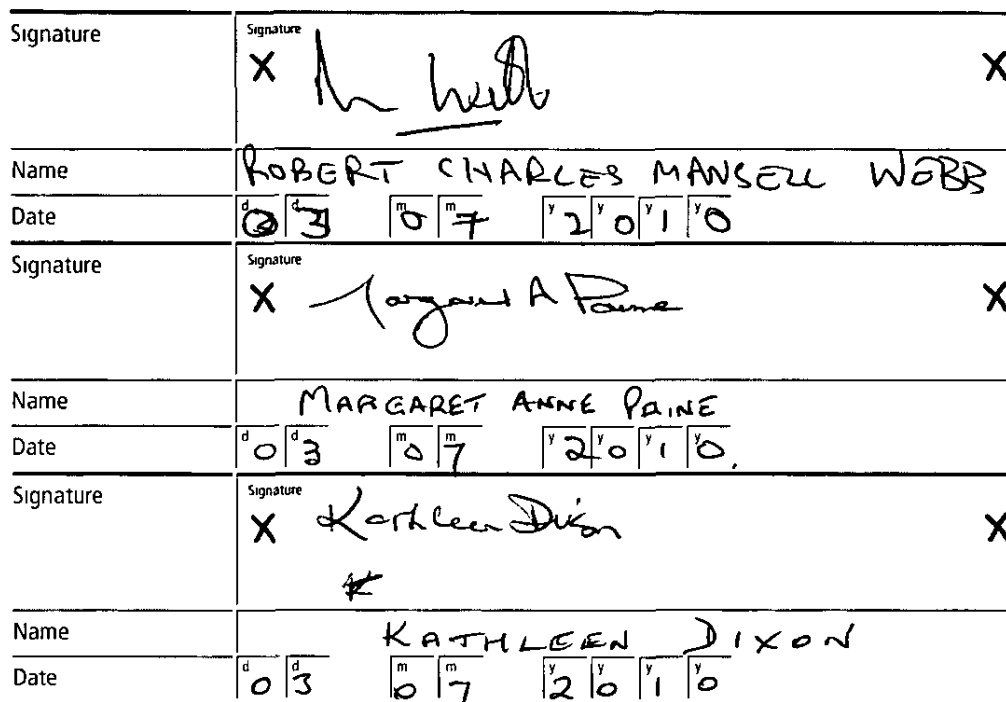 Signature
Signature
X X
Name ROBERT CHARLES MANSELL WEBB
Date d 0 d 3 m 0 m 7 y 2 y 0 y 1 y 0
Signature
Signature
X Margaret A Paine X
Name MARGARET ANNE PAINE
Date d 0 d 3 m 0 m 7 y 2 y 0 y 1 y 0
Signature
Signature
X Kathleen Dixon X
Name KATHLEEN DIXON
Date d 0 d 3 m 0 m 7 y 2 y 0 y 1 y 0